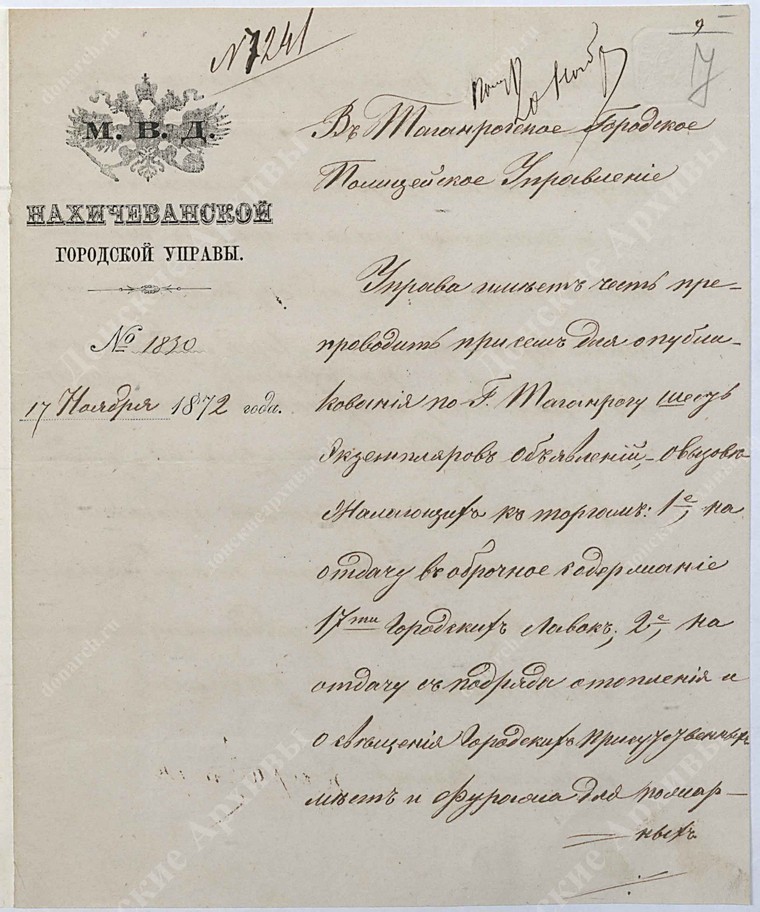 N 7241
9
У
20 Нояб
М. В. Д.
НАХИЧЕВАНСКОЙ
ГОРОДСКОЙ УПРАВЫ.
№ 1830
17 Ноября 1872 года.
Въ Таганрогское Городское
Полицейское Управленіе
Управа имѣетъ честь пре-
проводить при семъ для опубли-
кованія по Г. Таганрогу шесть
Экземпляровъ Объявленій, о вызовѣ
Желающихъ къ торгамъ: 1е, на
отдачу въ оброчное содержаніе
17ти Городскихъ Лавокъ; 2е, на
отдачу съ подряда отопленія и
освѣщенія Городскихъ Присутственныхъ
мѣстъ и Фуража для пожар-
ныхъ
донские архивы
donarch.ru